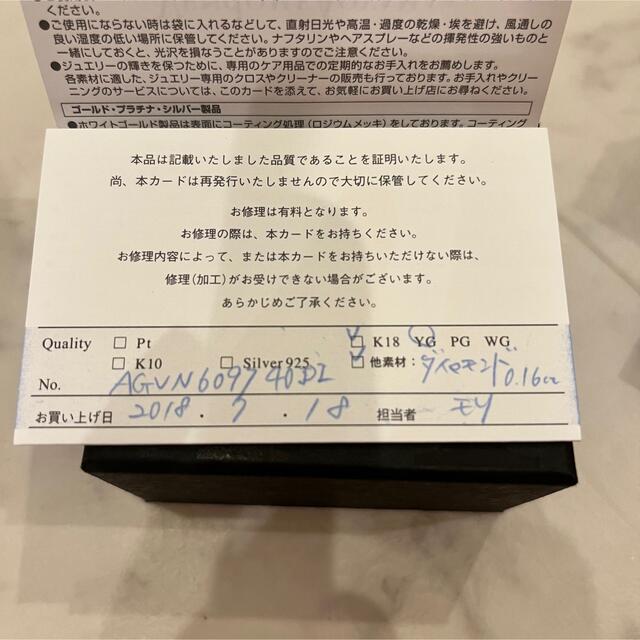 ください。
●ご使用にならない時は袋に入れるなどして、直射日光や高温・過度の乾燥・埃を避け、風通しの
良い湿度の低い場所に保管してください。ナフタリンやヘアスプレーなどの揮発性の強いものと
一緒にしておくと、光沢を損なうことがありますのでご注意ください。
●ジュエリーの輝きを保つために、専用のケア用品での定期的なお手入れをお薦めします。
各素材に適した、ジュエリー専用のクロスやクリーナーの販売も行っております。お手入れやクリー
ニングのサービスについては、このカードを添えて、お気軽にお買い上げ店にお尋ねください。
ゴールド・プラチナ・シルバー製品
●ホワイトゴールド製品は表面にコーティング処理(ロジウムメッキ)をしております。コーティング
本品は記載いたしました品質であることを証明いたします。
尚、本カードは再発行いたしませんので大切に保管してください。
お修理は有料となります。
お修理の際は、本カードをお持ちください。
お修理内容によって、または本カードをお持ちいただけない際は、
修理(加工)がお受けできない場合がございます。
あらかじめご了承ください。
Quality □ Pt □ K18 YG PG WG
□ K10 □ Silver925 □ 他素材: ダイヤモンド 0.16ct
No. AGVN609740DI
お買い上げ日 2018. 7. 18 担当者